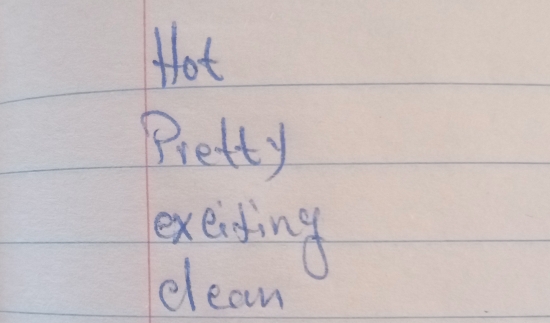 Hot
Pretty
exciting
clean